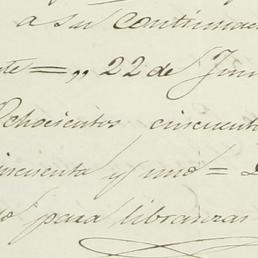 a su continuac
te = „ 22 de Jun
Ochocientos cincuent
incuenta y uno =
para libranzas